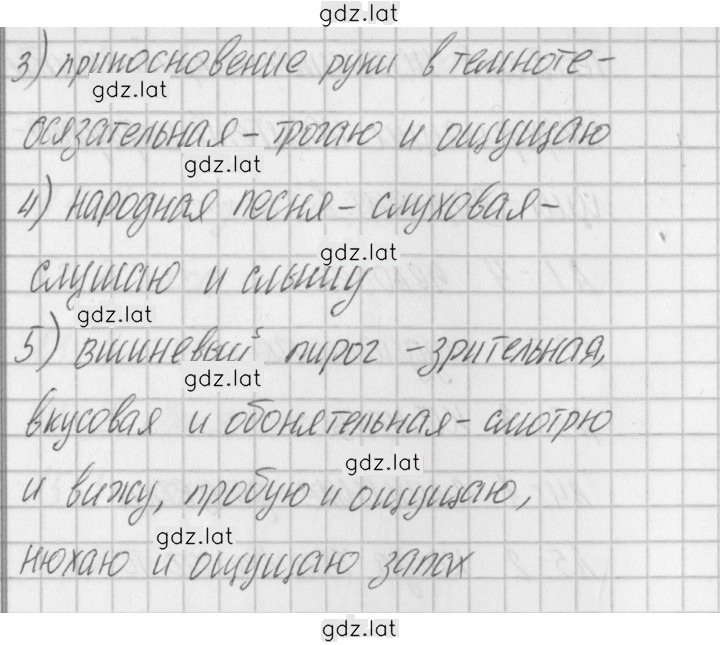 gdz.lat
3) прикосновение руки в темноте-
gdz.lat
осязательная - трогаю и ощущаю
gdz.lat
4) народная песня - слуховая -
gdz.lat
слушаю и слышу
gdz.lat
5) вшиневый пирог - зрительная,
gdz.lat
вкусовая и обонятельная - смотрю
gdz.lat
и вижу, пробую и ощущаю,
gdz.lat
нюхаю и ощущаю запах
gdz.lat